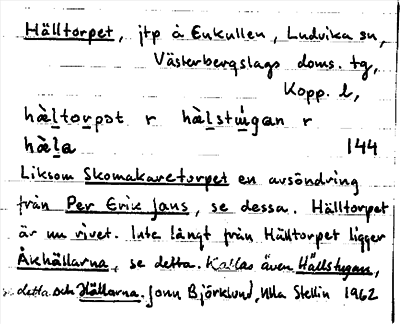 Hälltorpet, jtp å Enkullen, Ludvika sn,
Västerbergslags doms. tg,
Kopp. l,
hàltorpət r hàlstúgan r
hàla 144
Liksom Skomakaretorpet en avsöndring
från Per Erik Jans, se dessa. Hälltorpet
är nu rivet. Inte långt från Hälltorpet ligger
Åkhällarna, se detta. Kallas även Hällstugan,
se detta och Hällarna. John Björklund, Ulla Stellin 1962